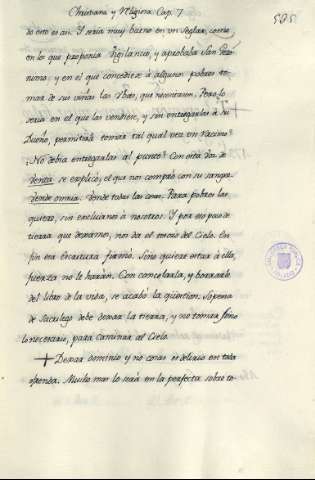 Christiana y Religiosa. Cap. 7
505
do esto es asi. Y seria muy bueno en un Seglar, como
en lo que proponia Vigilancio, y aprobaba San Gero-
nimo: y en el que concediese á algunos pobres to-
mar de sus viñas las Ubas, que necesitaren. Pero lo
seria en el que las vendiese, y sin entregarlas á su
Dueño, permitirá tomar tal qual vez un Racimo?
¿No debia entregarlas al punto? Con esta voz de
Venta se explicó, el que nos compró con su sangre
Vende omnia: Vende todas las cosas. Para pobres las
quiero, sin excluiros á vosotros. Y por ese poco de
tierra que dexamos, nos da el mismo del Cielo. En
fin era Escritura firmó. Si no quiere estar á ella,
fuerza no le harán. Con cancelarla, y borrarle
del libro de la vida, se acabó la qüestion. So pena
de Sacrilego debe dexar la tierra, y no tomar sino
lo necesario, para caminar al Cielo.
Dexar dominio y no cosas es delirio en toda
ofrenda. Mucho mas lo será en la perfecta sobre to-